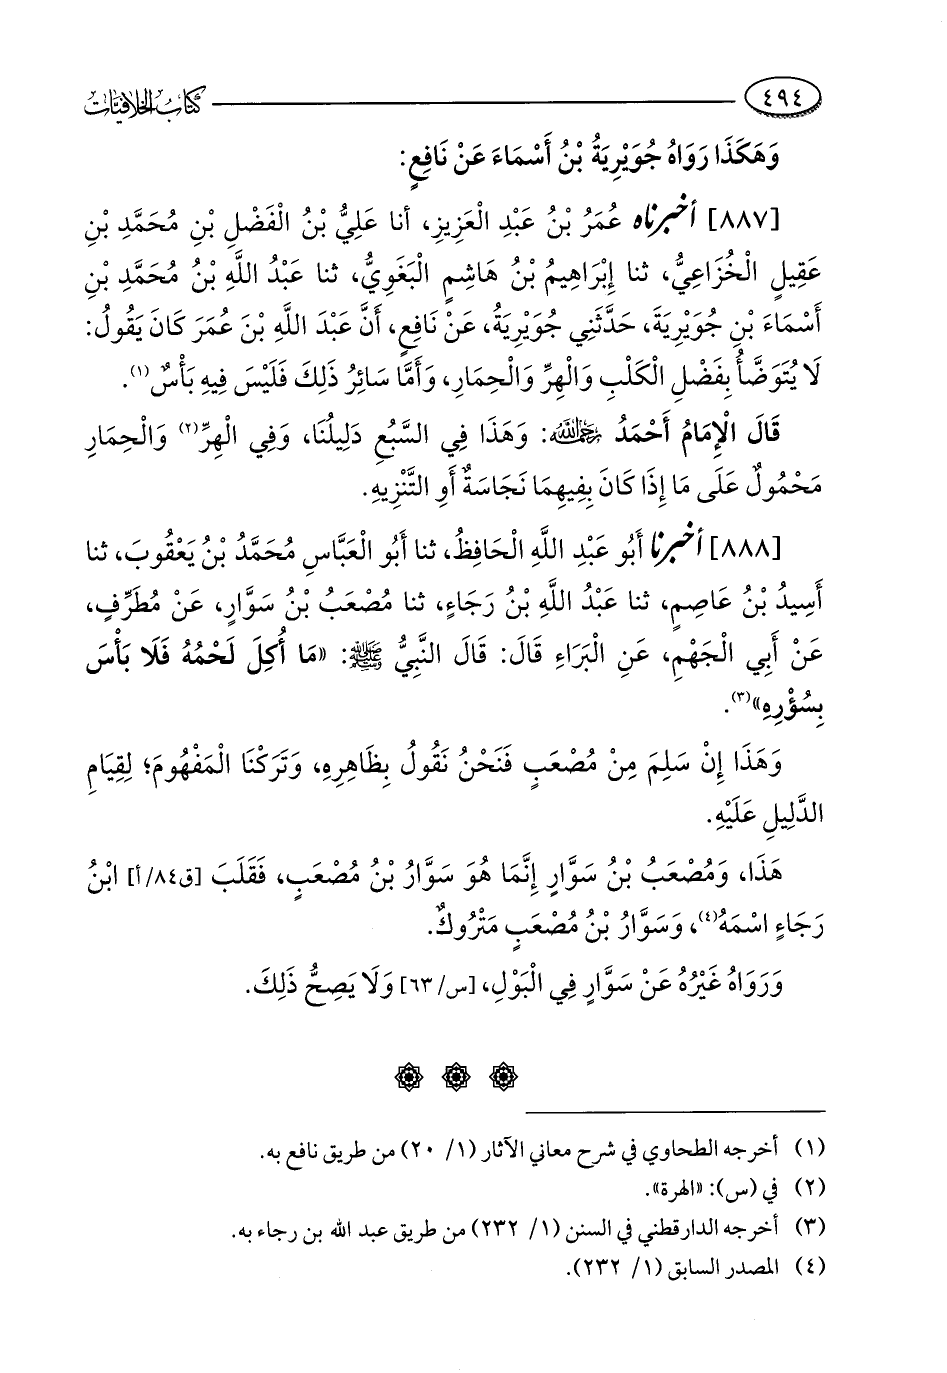 ٤٩٤ كتاب الخلافيات
وَهَكَذَا رَوَاهُ جُوَيْرِيَةُ بْنُ أَسْمَاءَ عَنْ نَافِعٍ:
[٨٨٧] أخبرناه عُمَرُ بْنُ عَبْدِ الْعَزِيزِ، أنا عَلِيُّ بْنُ الْفَضْلِ بْنِ مُحَمَّدِ بْنِ
عَقِيلٍ الْخُزَاعِيُّ، ثنا إِبْرَاهِيمُ بْنُ هَاشِمٍ الْبَغَوِيُّ، ثنا عَبْدُ اللَّهِ بْنُ مُحَمَّدِ بْنِ
أَسْمَاءَ بْنِ جُوَيْرِيَةَ، حَدَّثَنِي جُوَيْرِيَةُ، عَنْ نَافِعٍ، أَنَّ عَبْدَ اللَّهِ بْنَ عُمَرَ كَانَ يَقُولُ:
لَا يُتَوَضَّأُ بِفَضْلِ الْكَلْبِ وَالْهِرِّ وَالْحِمَارِ، وَأَمَّا سَائِرُ ذَلِكَ فَلَيْسَ فِيهِ بَأْسٌ(١).
قَالَ الْإِمَامُ أَحْمَدُ رحمه الله: وَهَذَا فِي السَّبُعِ دَلِيلُنَا، وَفِي الْهِرِّ(٢) وَالْحِمَارِ
مَحْمُولٌ عَلَى مَا إِذَا كَانَ بِفِيهِمَا نَجَاسَةٌ أَوِ التَّنْزِيهِ.
[٨٨٨] أخبرنا أَبُو عَبْدِ اللَّهِ الْحَافِظُ، ثنا أَبُو الْعَبَّاسِ مُحَمَّدُ بْنُ يَعْقُوبَ، ثنا
أَسِيدُ بْنُ عَاصِمٍ، ثنا عَبْدُ اللَّهِ بْنُ رَجَاءٍ، ثنا مُصْعَبُ بْنُ سَوَّارٍ، عَنْ مُطَرِّفٍ،
عَنْ أَبِي الْجَهْمِ، عَنِ الْبَرَاءِ قَالَ: قَالَ النَّبِيُّ ﷺ: «مَا أُكِلَ لَحْمُهُ فَلَا بَأْسَ
بِسُؤْرِهِ»(٣).
وَهَذَا إِنْ سَلِمَ مِنْ مُصْعَبٍ فَنَحْنُ نَقُولُ بِظَاهِرِهِ، وَتَرَكْنَا الْمَفْهُومَ؛ لِقِيَامِ
الدَّلِيلِ عَلَيْهِ.
هَذَا، وَمُصْعَبُ بْنُ سَوَّارٍ إِنَّمَا هُوَ سَوَّارُ بْنُ مُصْعَبٍ، فَقَلَبَ [ق٨٤/أ] ابْنُ
رَجَاءٍ اسْمَهُ(٤)، وَسَوَّارُ بْنُ مُصْعَبٍ مَتْرُوكٌ.
وَرَوَاهُ غَيْرُهُ عَنْ سَوَّارٍ فِي الْبَوْلِ، [س/٦٣] وَلَا يَصِحُّ ذَلِكَ.
(١) أخرجه الطحاوي في شرح معاني الآثار (١/ ٢٠) من طريق نافع به.
(٢) في (س): «الهرة».
(٣) أخرجه الدارقطني في السنن (١/ ٢٣٢) من طريق عبد الله بن رجاء به.
(٤) المصدر السابق (١/ ٢٣٢).